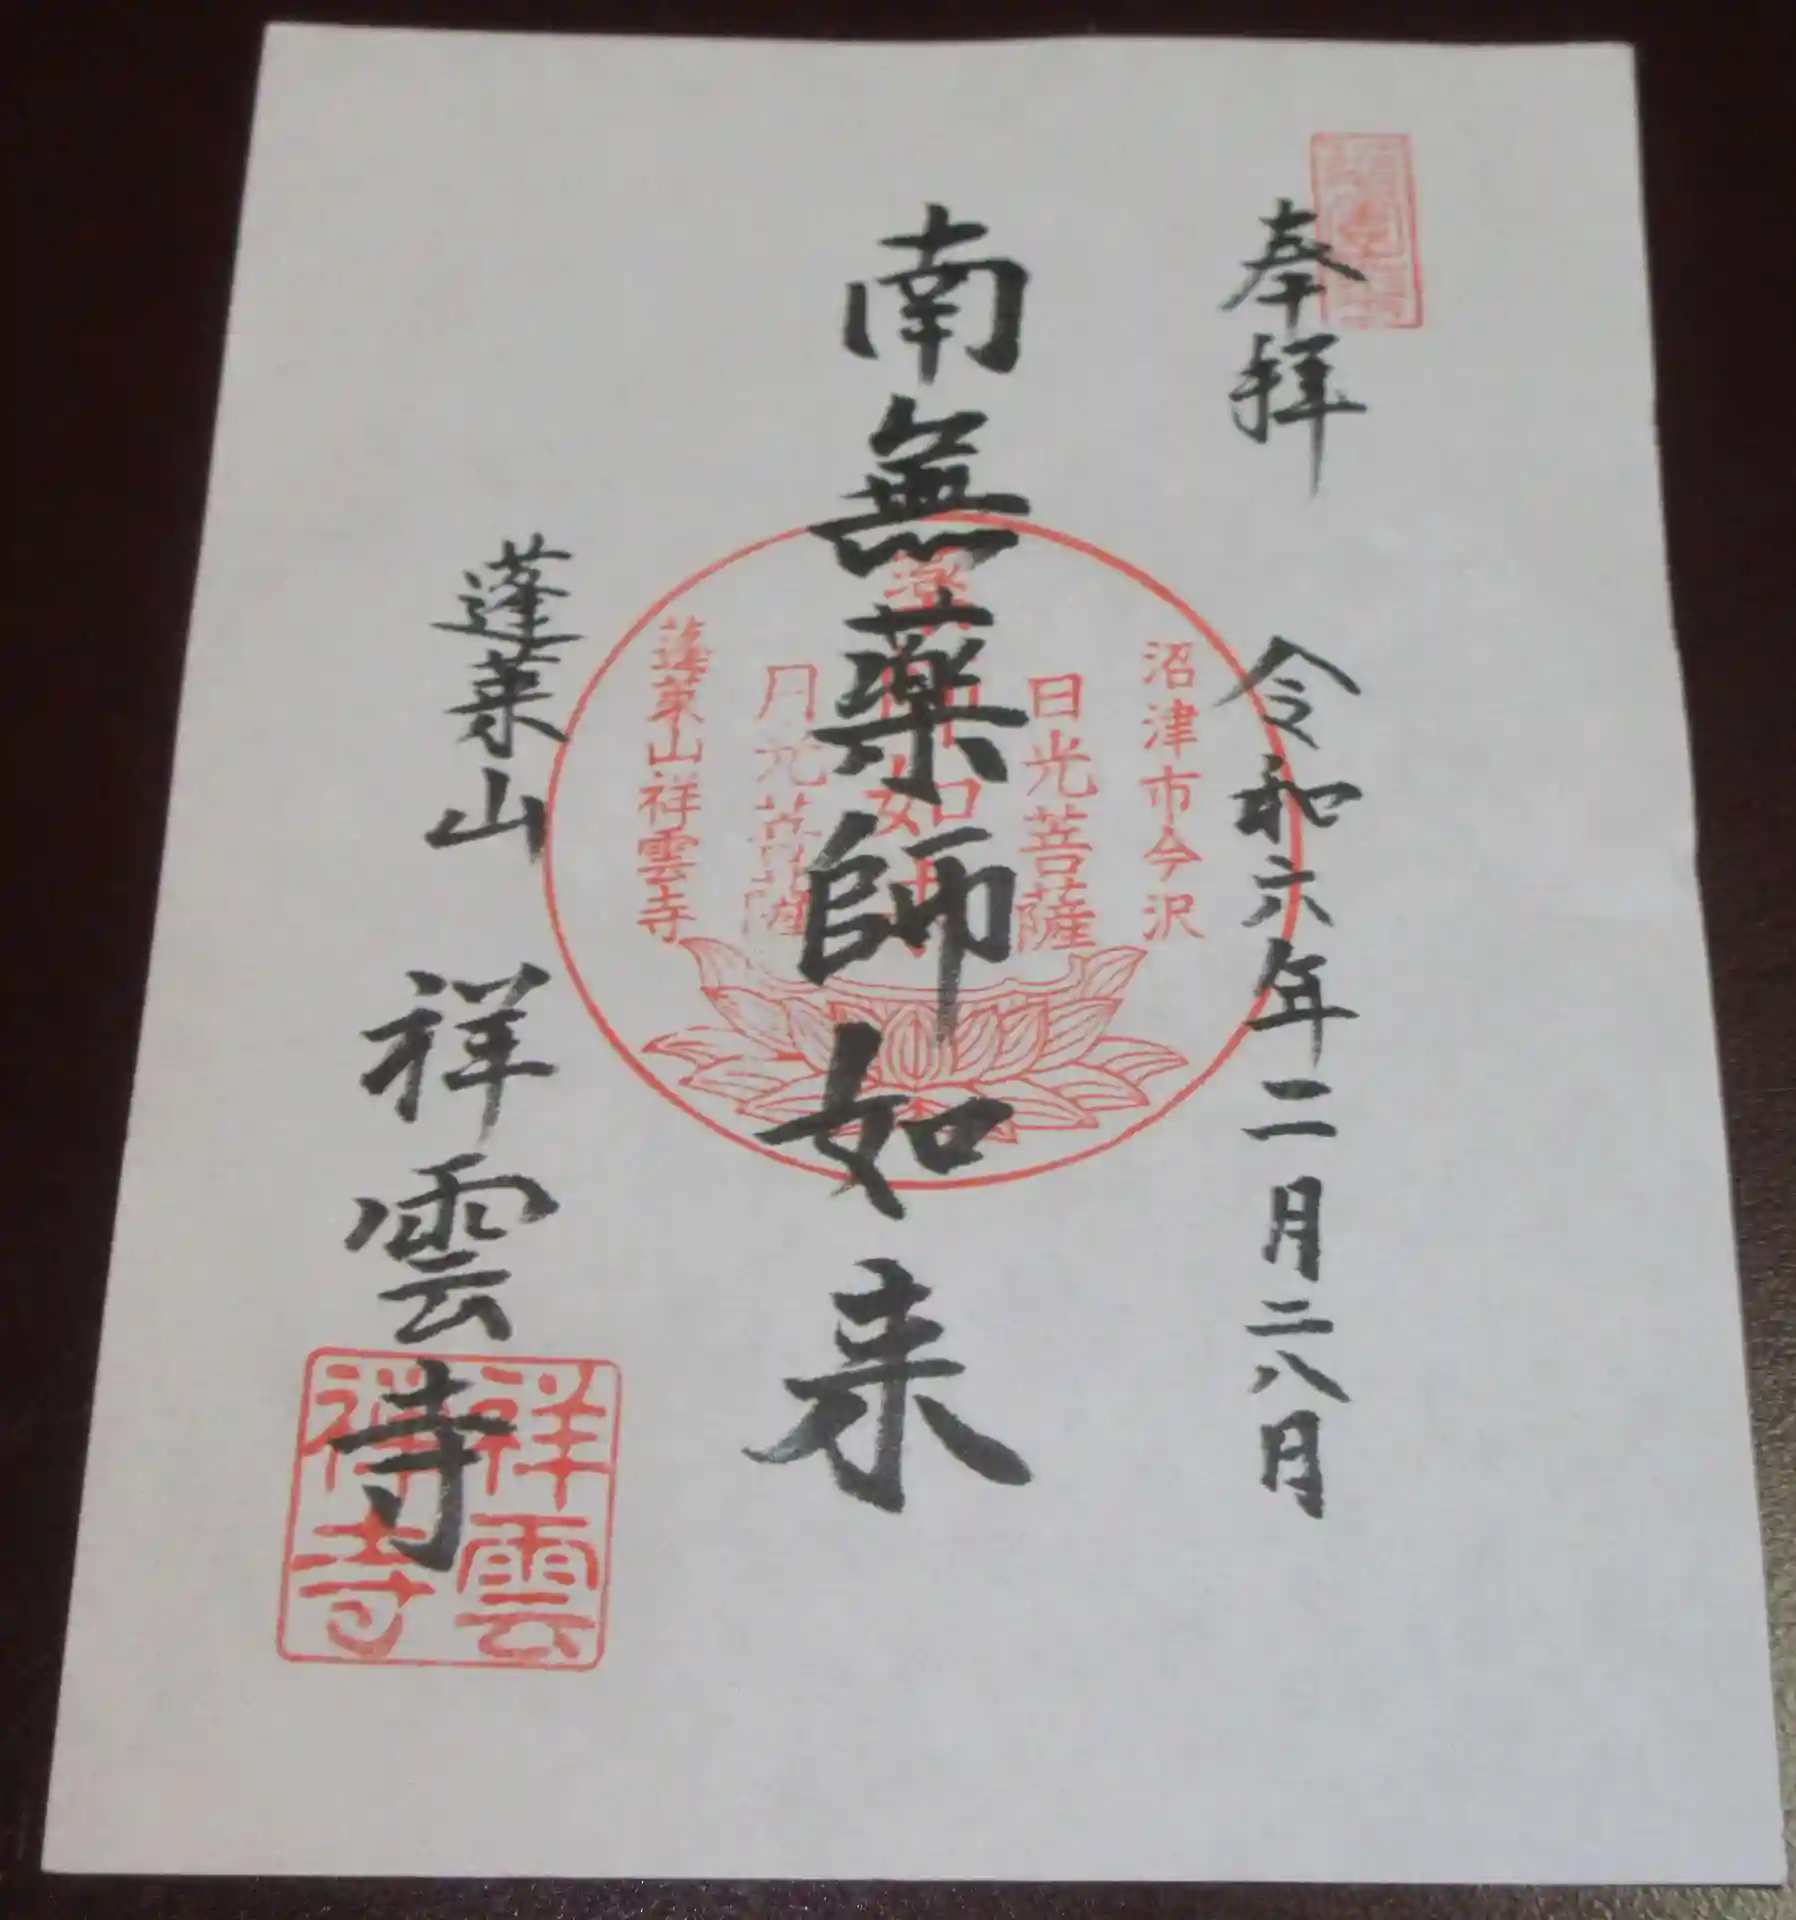 奉拝
令和六年二月二八月
南無薬師如来
蓬莱山
祥雲寺
沼津市今沢
日光菩薩
薬師如来
月光菩薩
蓬莱山祥雲寺
祥雲
禅寺